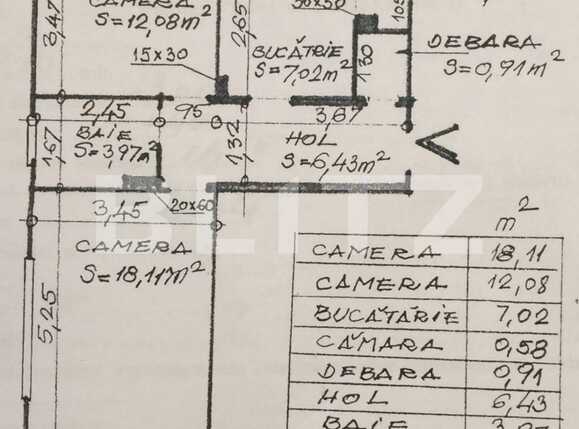 CAMERA
S=12,08m²
3,47
2,65
30x30
105
15x30
BUCĂTRIE
S=7,02m²
1 30
DEBARA
S=0,91m²
2,45
95
3,67
BAIE
S=3,97m²
1,67
1,32
HOL
S=6,43m²
BLITZ
20x60
3,45
CAMERA
S=18,11m²
5,25
m²
CAMERA 18,11
CAMERA 12,08
BUCĂTĂRIE 7,02
CĂMARA 0,58
DEBARA 0,91
HOL 6,43
BAIE